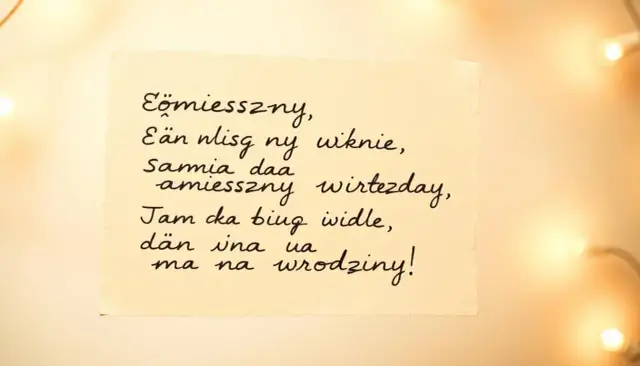 Eömiesszny,
Eän nlisg ny wiknie,
Sammia daa
amiesszny wirtezday,
Jam cka biug widle,
dän vna ua
ma na wrodziny!